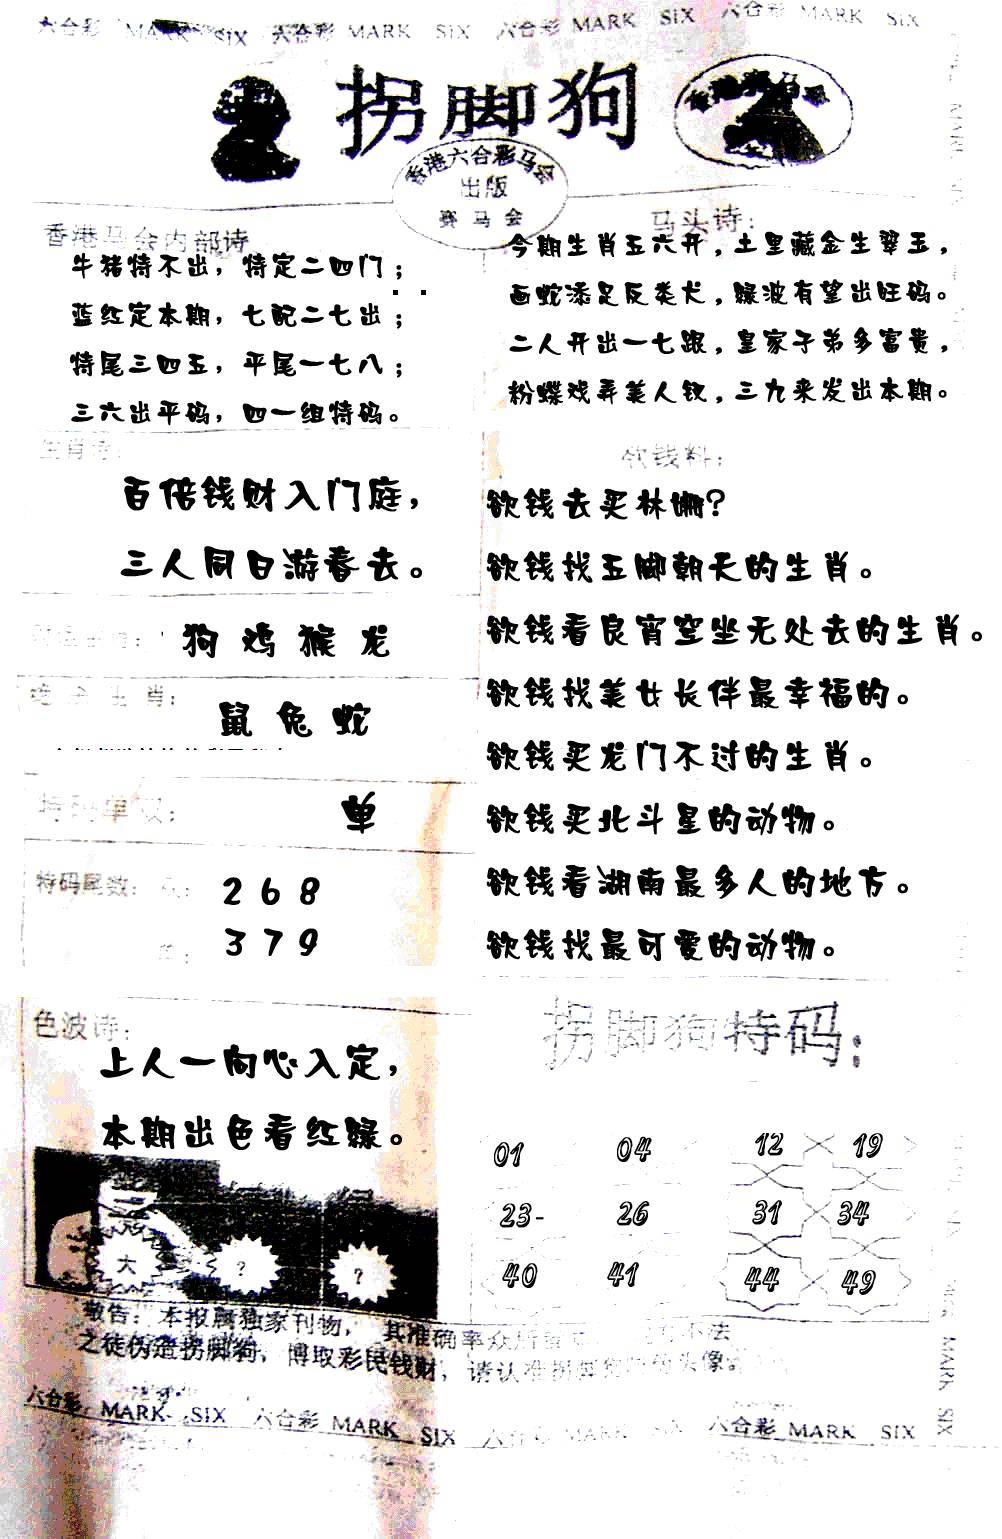 六合彩 MARK SIX 六合彩 MARK SIX 六合彩 MARK SIX 六合彩 MARK SIX
拐脚狗
香港六合彩马会
出版
赛马会
香港马会内部诗
牛猪特不出，特定二四门；
蓝红定本期，七配二七出；
特尾三四五，平尾一七八；
三六出平码，四一组特码。
马头诗：
今期生肖五六开，土里藏金生翠玉，
画蛇添足反类犬，绿波有望出旺码。
二人开出一七跟，皇家子弟多富贵，
粉蝶戏弄美人钗，三九来发出本期。
生肖诗：
百倍钱财入门庭，
三人同日游春去。
狗 鸡 猴 龙
生肖：
鼠 兔 蛇
特码单双：
单
特码尾数：
2 6 8
3 7 9
欲钱料：
欲钱去买林姗？
欲钱找五脚朝天的生肖。
欲钱看良宵空坐无处去的生肖。
欲钱找美女长伴最幸福的。
欲钱买龙门不过的生肖。
欲钱买北斗星的动物。
欲钱看湖南最多人的地方。
欲钱找最可爱的动物。
色波诗：
上人一向心入定，
本期出色看红绿。
大 ? ?
拐脚狗特码：
01 04 12 19
23- 26 31 34
40 41 44 49
敬告：本报属独家刊物，其准确率众所 不法
之徒伪造拐脚狗，博取彩民钱财，请认准拐脚狗 头像。
六合彩 MARK SIX 六合彩 MARK SIX 六合彩 MARK SIX 六合彩 MARK SIX
MARK SIX